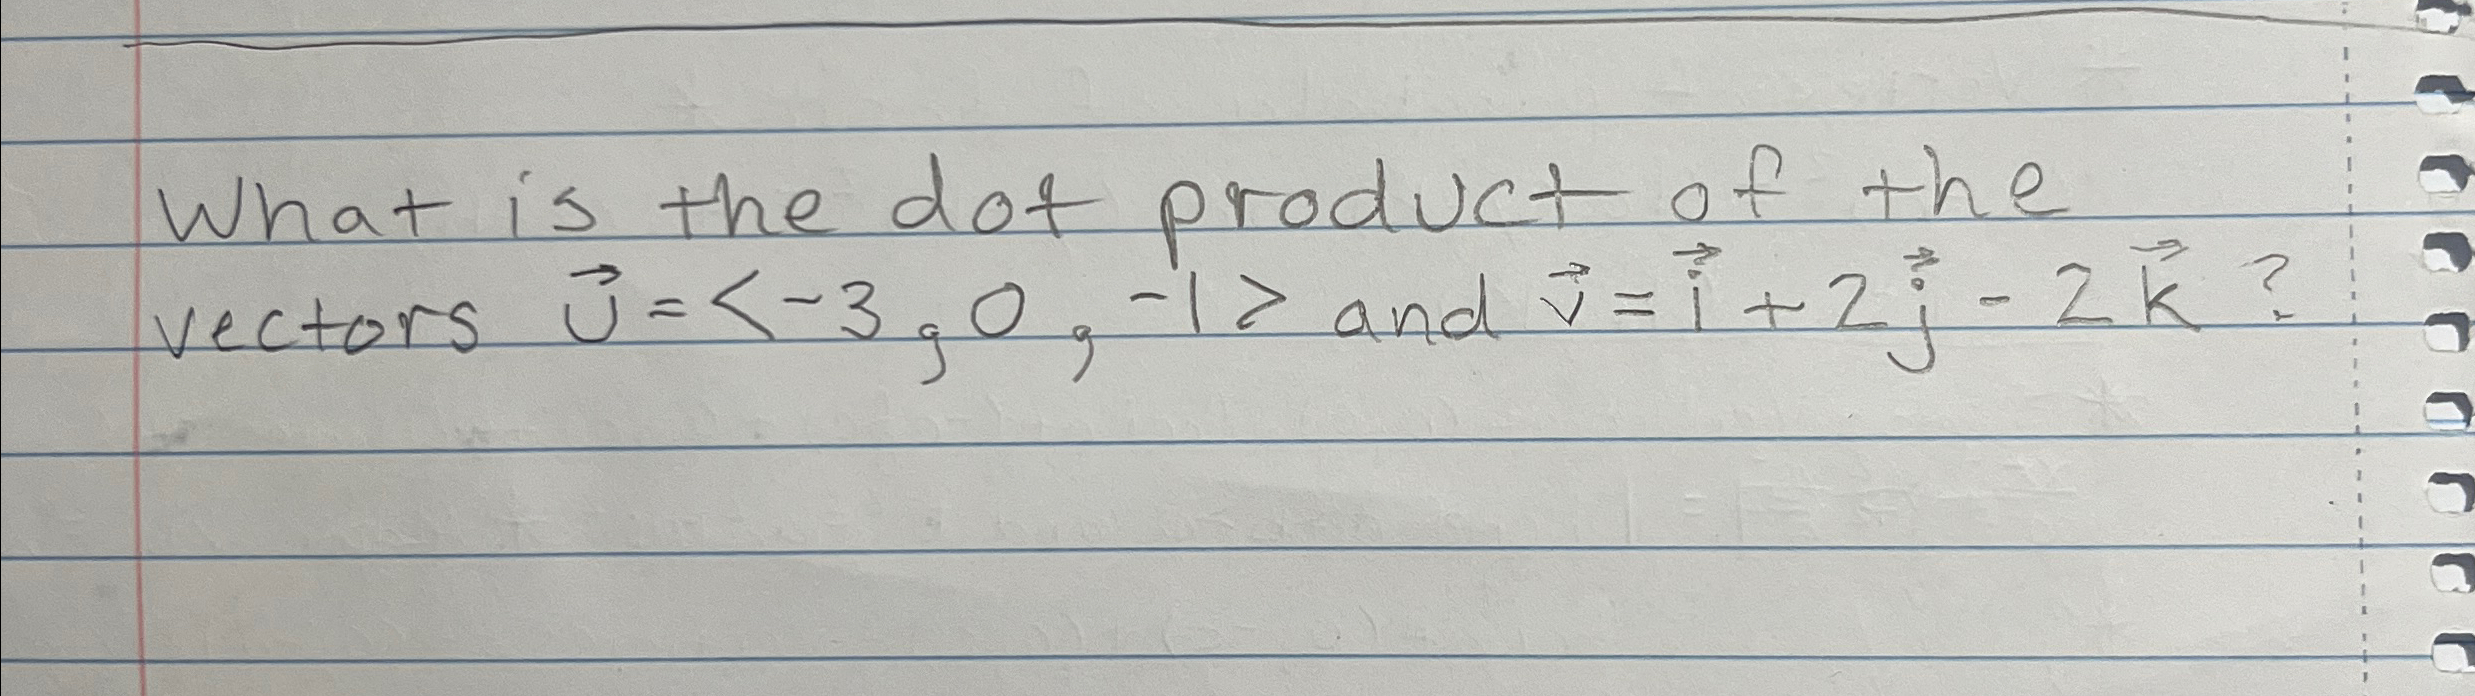 What is the dot product of the
vectors u⃗ = <-3, 0, -1> and v⃗ = i⃗ + 2j⃗ - 2k⃗ ?